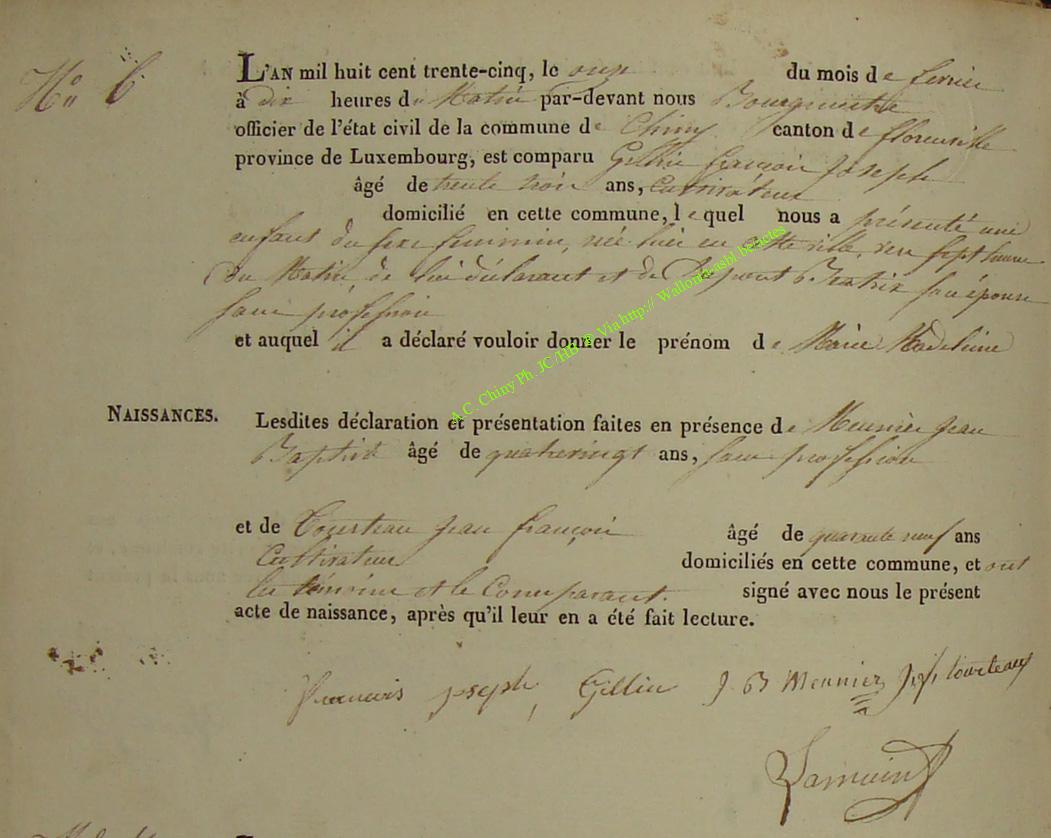 N° 6
L'AN mil huit cent trente-cinq, le onze du mois de fevrier
à dix heures du Matin par-devant nous Bourgmestre
officier de l'état civil de la commune de Chiny canton de florenville
province de Luxembourg, est comparu Gillin françois Joseph
âgé de trente trois ans, Cultivateur
domicilié en cette commune, lequel nous a présenté une
enfant du sexe feminin, née hier en cette ville, vers sept heures
du Matin, de lui déclarant et de Dupont Béatrix son épouse
sans profession
et auquel il a déclaré vouloir donner le prénom de Marie Madeleine
NAISSANCES.
Lesdites déclaration et présentation faites en présence de Meunier Jean
Baptist âgé de quatrevingt ans, sans profession
et de Tourteau jean françois âgé de quarante neuf ans
Cultivateur domiciliés en cette commune, et ont
les témoins et le Comparant. signé avec nous le présent
acte de naissance, après qu'il leur en a été fait lecture.
francois joseph Gillin J B Meunier J f tourteaux
A.C. Chiny Ph. JC/HB © Via http:// Wallonia asbl.be/actes